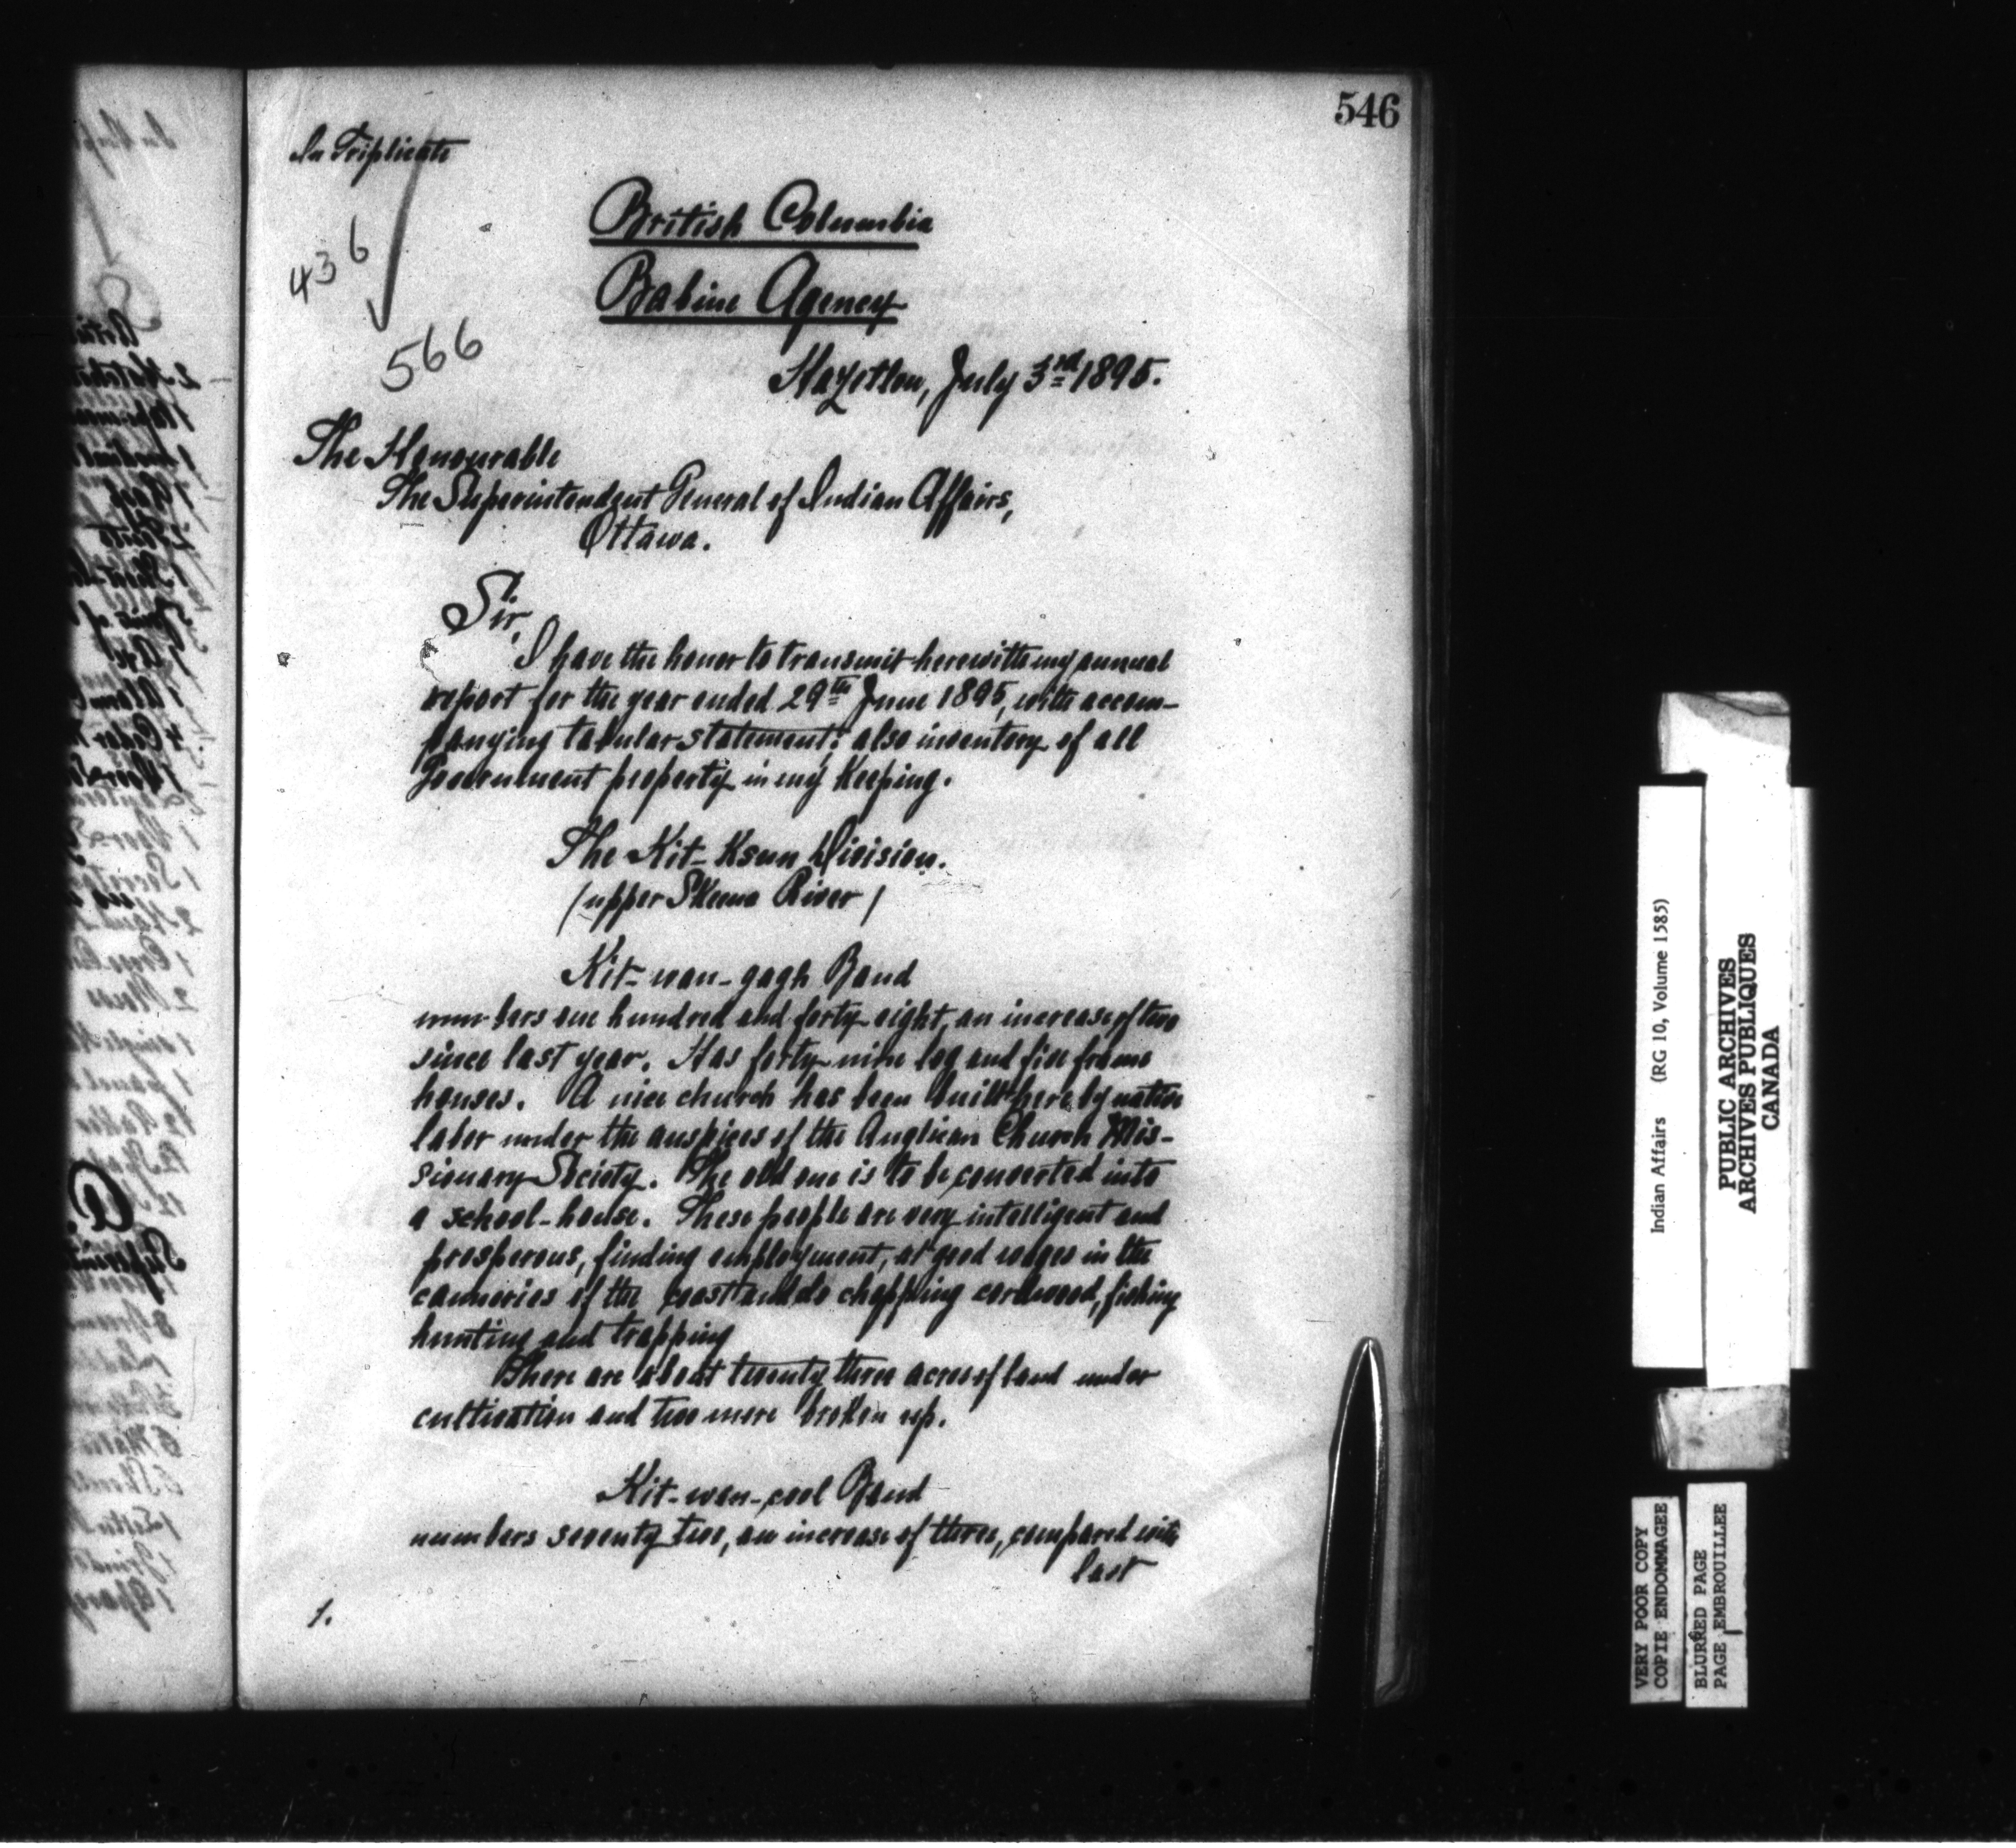 546
In Triplicate
436
566
British Columbia
Babine Agency
Hazelton, July 3rd 1895.
The Honourable
The Superintendent General of Indian Affairs,
Ottawa.
Sir,
I have the honor to transmit herewith my annual
report for the year ended 29th June 1895, with accom-
panying tabular statement; also inventory of all
Government property in my Keeping.
The Kit-Ksun Division.
(upper Skeena River)
Kit-wan-gagh Band
numbers one hundred and forty eight, an increase of two
since last year. Has forty-nine log and five frame
houses. A nice church has been built here by native
labor under the auspices of the Anglican Church Mis-
sionary Society. The old one is to be converted into
a school-house. These people are very intelligent and
prosperous, finding employment, at good wages in the
canneries of the coast and do chopping cordwood, fishing
hunting and trapping
There are about twenty three acres of land under
cultivation and two more broken up.
Kit-wan-cool Band
numbers seventy two, an increase of three, compared with
last
1.
Indian Affairs (RG 10, Volume 1585)
PUBLIC ARCHIVES
ARCHIVES PUBLIQUES
CANADA
VERY POOR COPY
COPIE ENDOMMAGEE
BLURRED PAGE
PAGE EMBROUILLEE